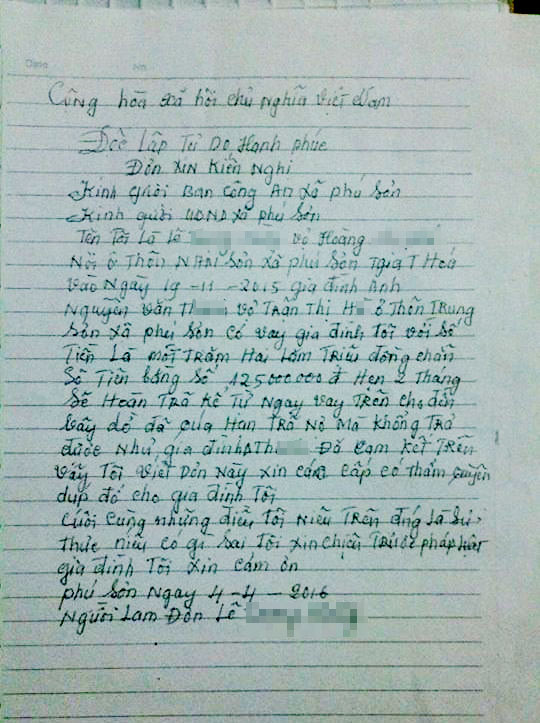 Date No
Công hòa xã hôi chủ nghĩa việt Nam
Đôc lâp Tự Do Hạnh phúc
Đơn XIN Kiến Nghi
Kinh gưởi Ban công AN xã phú Sơn
Kinh gưởi UDND xã phú Sơn
Tên Tôi là Lê vợ Hoàng
Nơi ở Thôn NAM Sơn xã phú Sơn Tgia T Hoá
vào Ngày 19 - 11 - 2015 gia đình Anh
Nguyên văn Th vợ Trân Thi H ở Thôn Trung
Sơn xã phú Sơn có vay gia đình Tôi với số
Tiền là một Trăm Hai Lăm Triệu đồng chẵn
Số Tiền bằng số 125000.000 đ Hẹn 2 Tháng
Sẽ Hoàn Trã kể Từ Ngay vay Trên cho đến
bây dờ đã quá Hạn Trã Nợ Mà không Trã
được Như gia đình A Th Đã Cam kết Trên
vậy Tôi viết Đơn Này xin các cấp có thẩm quyền
dup đỡ cho gia đình Tôi
Cuối cùng những điều Tôi Niêu Trên đúng là Sự
thực niếu có gì sai Tôi xin chiệu Trước pháp luật
gia đình Tôi xin cảm ơn
phú Sơn Ngay 4 - 4 - 2016
Người Lam Đơn Lê